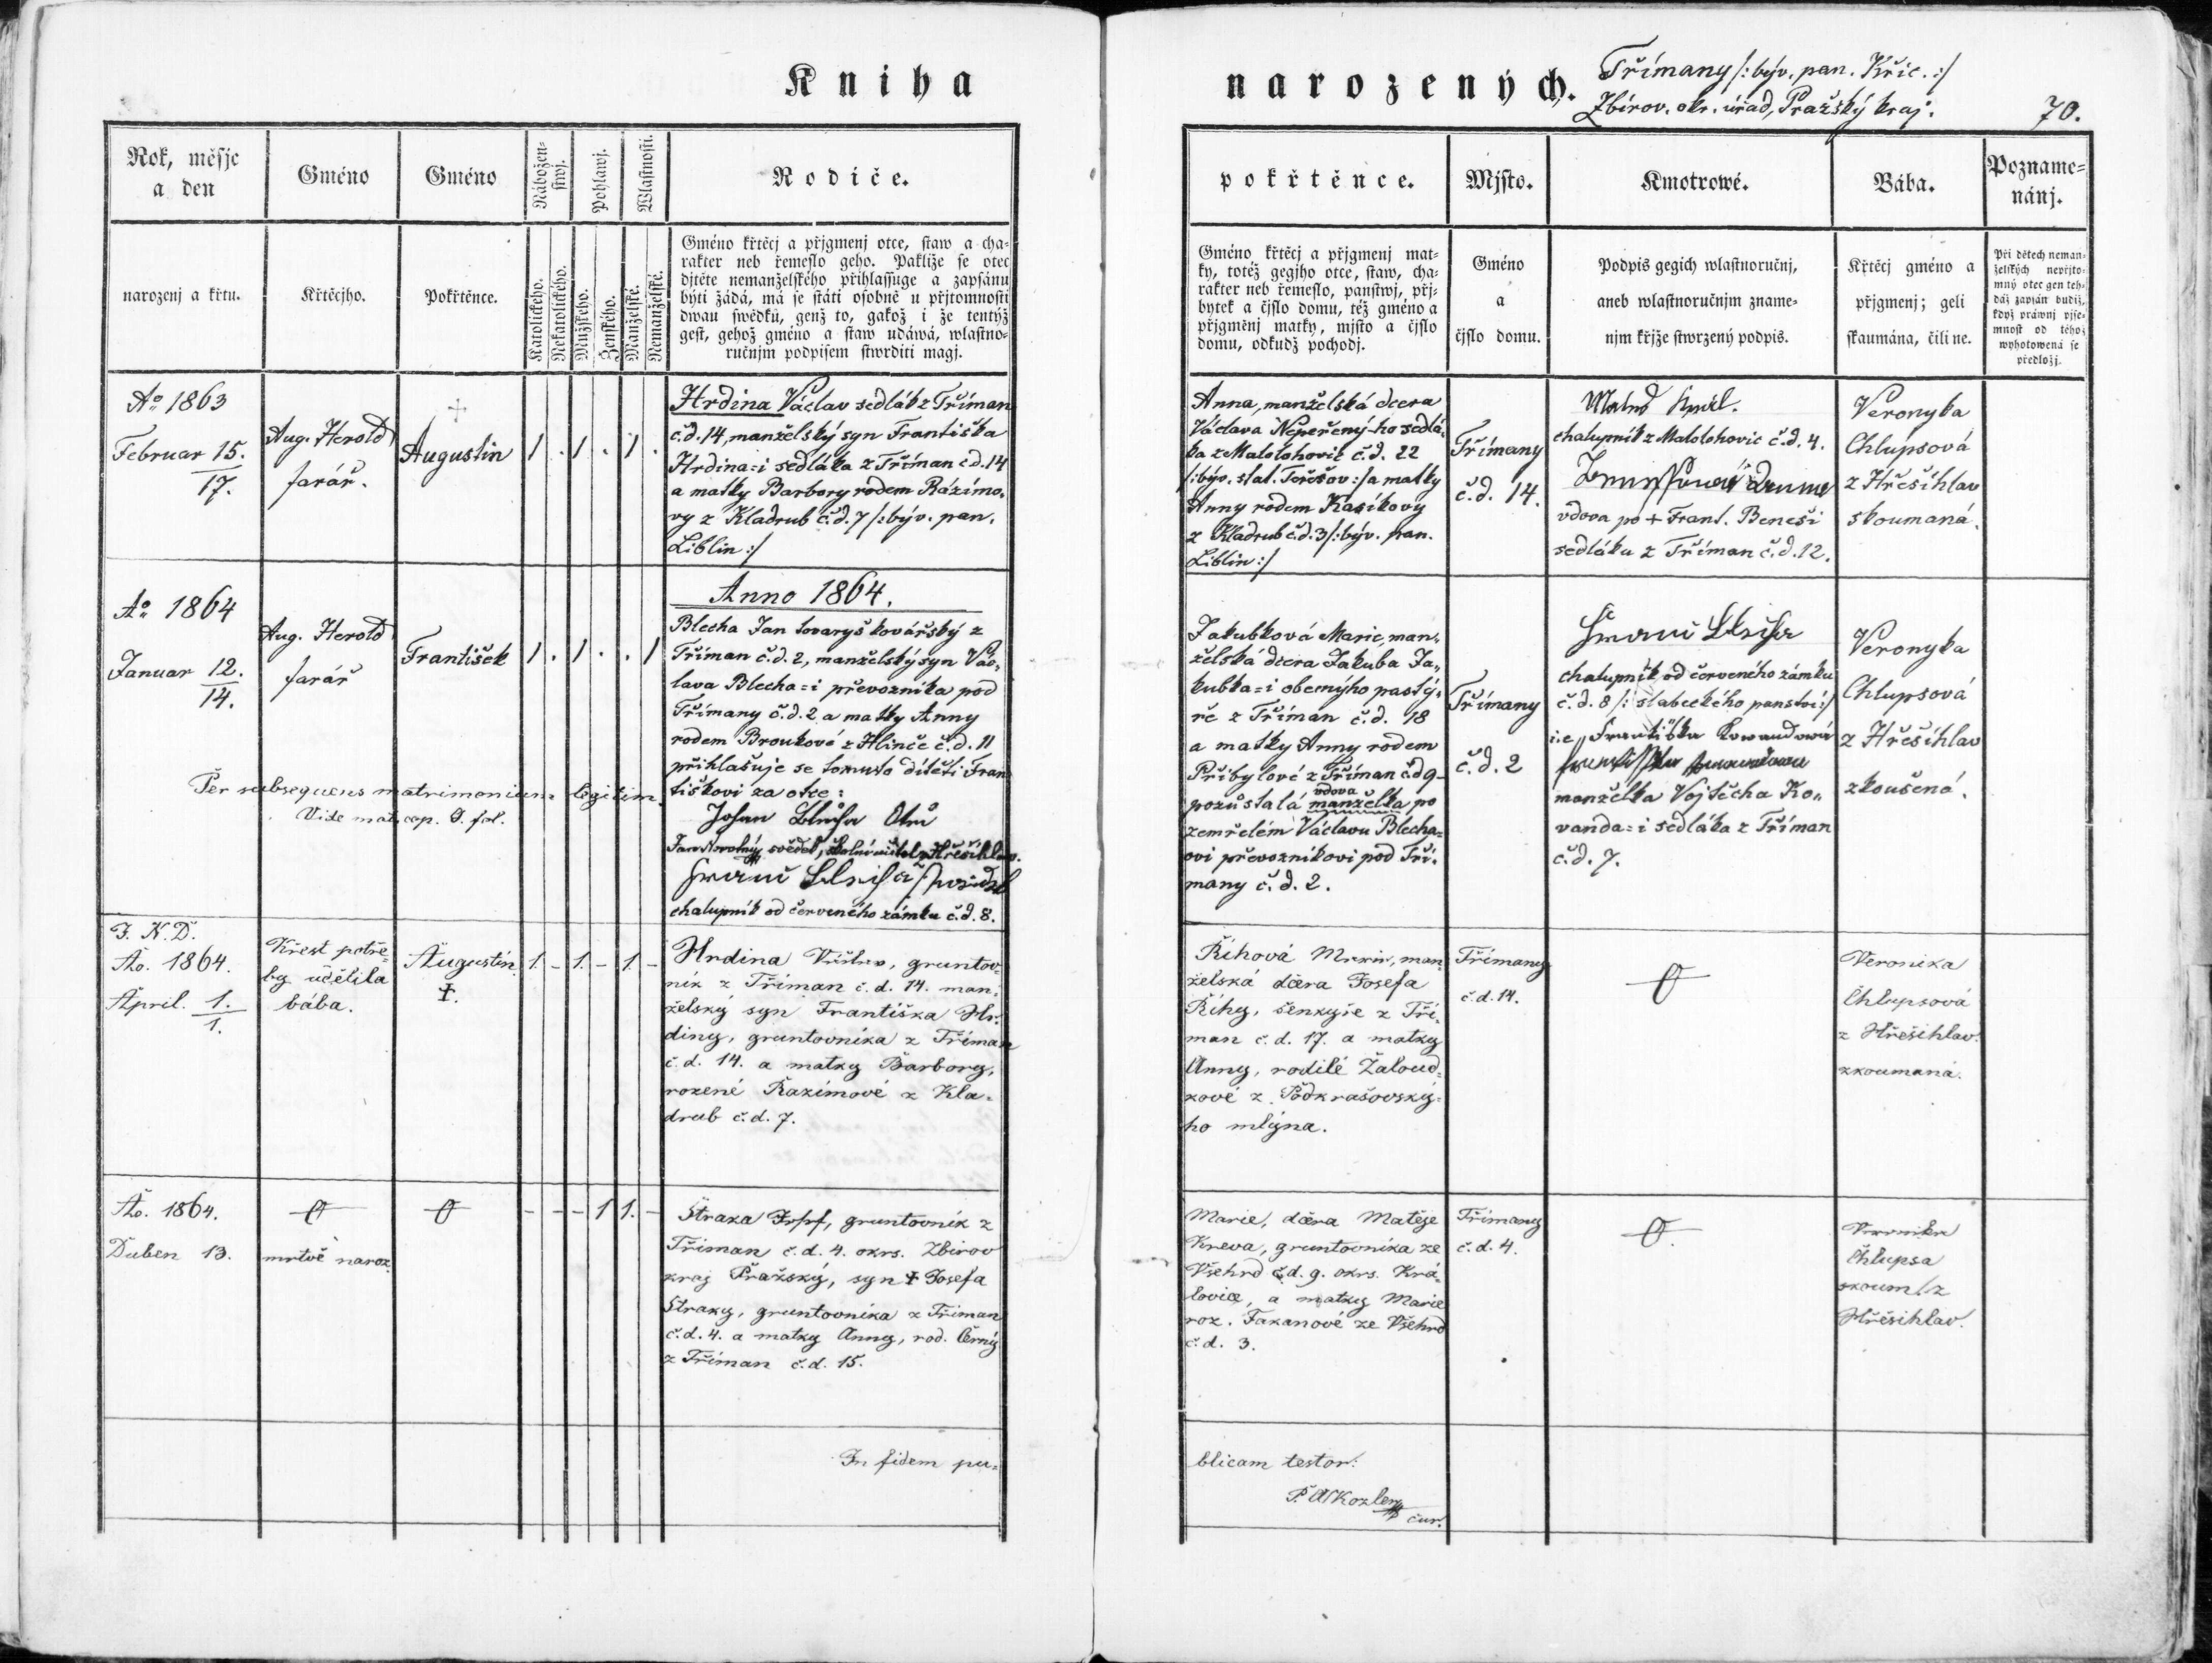 Kniha
narozených.
Třímany /: býv. pan. Křic. :/
Zbirov. okr. úřad, Pražský kraj.
70.
Rok, měsjc
a den
Gméno
Gméno
Nábožen-
stwj.
Pohlawj.
Wlastnosti.
Rodiče.
narozenj a křtu.
Křtěcjho.
Pokřtěnce.
Katolického.
Nekatolického.
Mužského.
Ženského.
Manželské.
Nemanželské.
Gméno křtěcj a přjgmenj otce, staw a cha-
rakter neb řemeslo geho. Paklíže se otec
djtěte nemanželského přihlassuge a zapsánu
býti žádá, má se státi osobně u přjtomnosti
dwau swědků, genž to, gakož i že tentýž
gest, gehož gméno a staw udáwá, wlastno-
ručnjm podpisem stwrditi magj.
pokřtěnce.
Mjsto.
Kmotrowé.
Bába.
Pozname-
nánj.
Gméno křtěcj a přjgmenj mat-
ky, totéž gegjho otce, staw, cha-
rakter neb řemeslo, panstwj, přj-
bytek a čjslo domu, též gméno a
přjgměnj matky, mjsto a čjslo
domu, odkudž pochodj.
Gméno
a
čjslo domu.
Podpis gegich wlastnoručnj,
aneb wlastnoručnjm zname-
njm křjže stwrzený podpis.
Křtěcj gméno a
přjgmenj; geli
skaumána, čili ne.
Při dětech neman-
želských nepřjto-
mný otec gen teh-
dáž zapsán budiž,
když práwnj pjse-
mnost od téhož
wyhotowená se
předložj.
Ao 1863
Februar 15.
17.
Aug. Herold
farář.
+
Augustin
1 . 1 . 1 .
Hrdina Václav sedlák z Tříman
č.d. 14, manželský syn Františka
Hrdina=i sedláka z Tříman č.d. 14
a matky Barbory rodem Rázimo-
vy z Kladrub č.d. 7 /: býv. pan.
Liblin :/
Anna, manželská dcera
Václava Nepeřený-ho sedlá-
ka z Malolohovic č.d. 22
/: býv. stat. Terešov :/ a matky
Anny rodem Kasíkovy
z Kladrub č.d. 3 /: býv. pan.
Liblin :/
Třímany
č.d. 14.
chalupník z Malolohovic č.d. 4.
vdova po + Frant. Beneši
sedláku z Tříman č.d. 12.
Veronyka
Chlupsová
z Hřešihlav
skoumaná.
Anno 1864.
Ao 1864
Januar 12.
14.
Aug. Herold
farář
František
1 . 1 . . 1
Blecha Jan tovaryš kovářský z
Tříman č.d. 2, manželský syn Vác-
lava Blecha=i převozníka pod
Třímany č.d. 2 a matky Anny
rodem Broukové z Hlinče č.d. 11
přihlašuje se tomuto dítěti Fran
tiškovi za otce:
Johan Blecha
Jan Novotný svědek, školní učitel z Hřešihlav.
Franc Blecha
chalupník od červeného zámku č.d. 8.
Per subsequens matrimonium legitim.
Vide mat. cop. fol.
Jakubková Marie, man-
želská dcera Jakuba Ja-
kubka=i obecnýho pastý-
ře z Tříman č.d. 18
a matky Anny rodem
Přibylové z Tříman č.d 9
vdova
pozůstalá manželka po
zemřelém Václavu Blecha=
ovi převozníkovi pod Tří-
many č.d. 2.
Třímany
č.d. 2
Franc Blecha
chalupník od červeného zámku
č.d. 8 /: slabeckého panství :/
Františka Kowandowá
manželka Vojtěcha Ko-
vanda=i sedláka z Tříman
č.d. 7.
Veronyka
Chlupsová
z Hřešihlav
zkoušená.
J. K. D.
Ao. 1864.
April. 1.
1.
Křest potře-
by udělila
bába.
Augustin
+.
1. - 1. - 1. -
Hrdina Václav, gruntov-
ník z Tříman č.d. 14. man-
želský syn Františka Hr-
diny, gruntovníka z Tříman
č.d. 14. a matky Barbory,
rozené Razimové z Kla-
drub č.d. 7.
Říhová Marie, man-
želská dcera Josefa
Říhy, šenkýře z Tří-
man č.d. 17. a matky
Anny, rodilé Žaloud-
kové z Podkrašovský-
ho mlýna.
Třímany
č.d. 14.
Veronika
Chlupsová
z Hřešihlav.
zkoumaná.
Ao. 1864.
Duben 13.
mrtvě naroz.
- - - 1 1. -
Straka Josef, gruntovník z
Tříman č.d. 4. okrs. Zbirov
kraj Pražský, syn + Josefa
Straky, gruntovníka z Tříman
č.d. 4. a matky Anny, rod. Černý
z Tříman č.d. 15.
Marie, dcera Matěje
Kreva, gruntovníka ze
Všehrd č.d. 9. okrs. Krá-
lovice, a matky Marie
roz. Fakanové ze Všehrd
č.d. 3.
Třímany
č.d. 4.
Veronika
Chlupsa
skoum. z
Hřešihlav.
In fidem pu-
blicam testor:
P. A Kozler
cur.